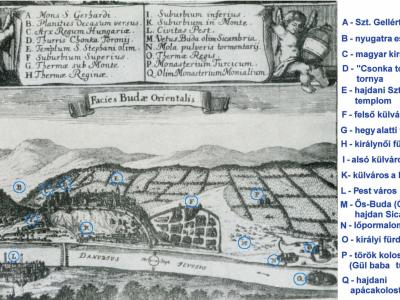 A Mons S. Gerhardi.
B. Planities Occasum versus.
C. Arx Regum Hungariæ.
D. Turris Csonka Toronij.
E. Templum S. Stephani olim.
F. Suburbium Superius.
G. Thermæ sub Monte.
H Thermæ Reginæ.
I. Suburbium inferius.
K. Suburbium in Monte.
L. Civitas Pest.
M. Vetus Buda olim Sicambria.
N. Mola pulveris tormentarij.
O. Thermæ Regis.
P. Monasterium Turcicum.
Q. Olim Monasterium Monialium
Facies Budæ Orientalis
B
C
F
L
DANUBIUS
FLUVIUS
A - Szt. Gellért
B - nyugatra es
C - magyar kir
D - "Csonka to
tornya
E - hajdani Szt
templom
F - felső külvár
G - hegy alatti
H - királynői fü
I - alsó külváro
K- külváros a h
L - Pest város
M - Ős-Buda (O
hajdan Sica
N - lőpormalom
O - királyi fürd
P - török kolos
(Gül baba tü
Q - hajdani
apácakolost